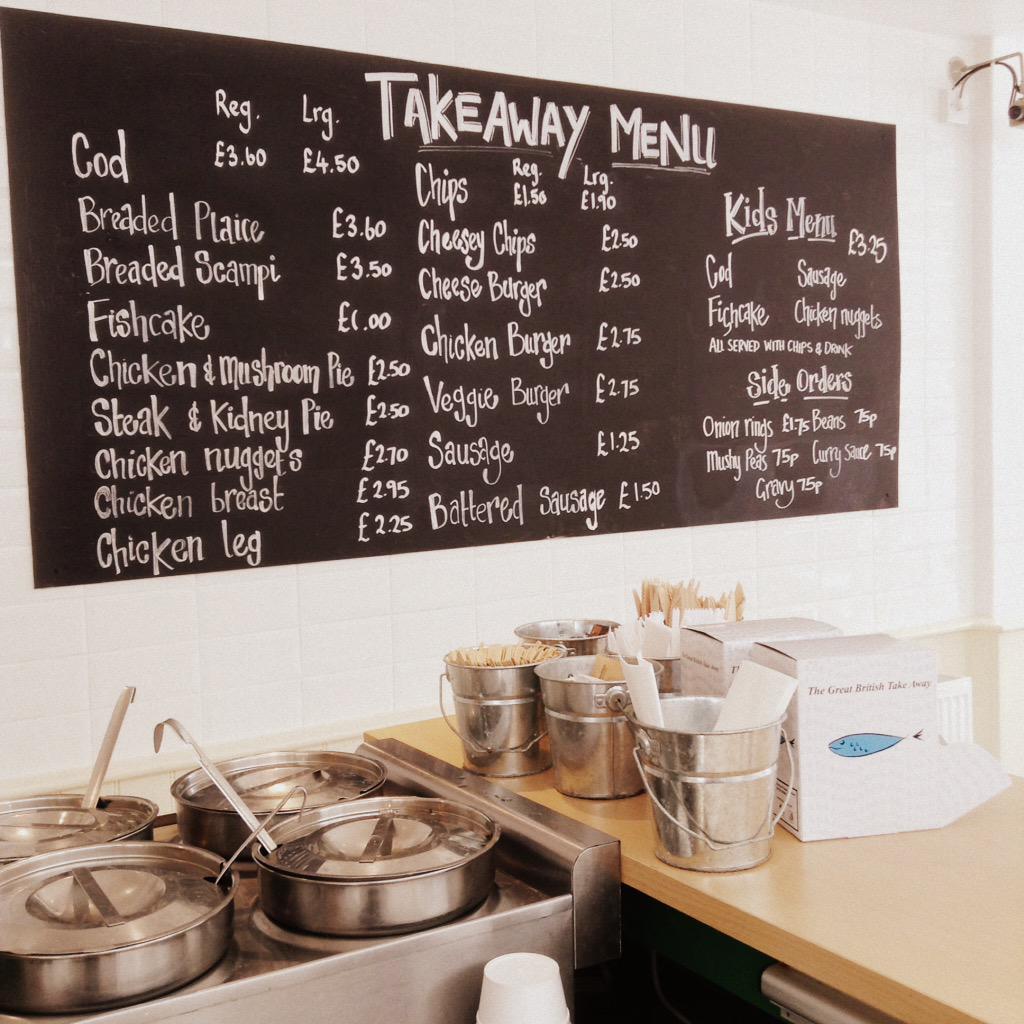 TAKEAWAY MENU
Reg. Lrg.
Cod £3.60 £4.50
Breaded Plaice £3.60
Breaded Scampi £3.50
Fishcake £1.00
Chicken & Mushroom Pie £2.50
Steak & Kidney Pie £2.50
Chicken nuggets £2.70
Chicken breast £2.95
Chicken leg £2.25
Reg. Lrg.
Chips £1.50 £1.90
Cheesey Chips £2.50
Cheese Burger £2.50
Chicken Burger £2.75
Veggie Burger £2.75
Sausage £1.25
Battered Sausage £1.50
Kids Menu
£3.25
Cod Sausage
Fishcake Chicken nuggets
ALL SERVED WITH CHIPS & DRINK
Side Orders
Onion rings £1.75 Beans 75p
Mushy Peas 75p Curry sauce 75p
Gravy 75p
The Great British Take Away